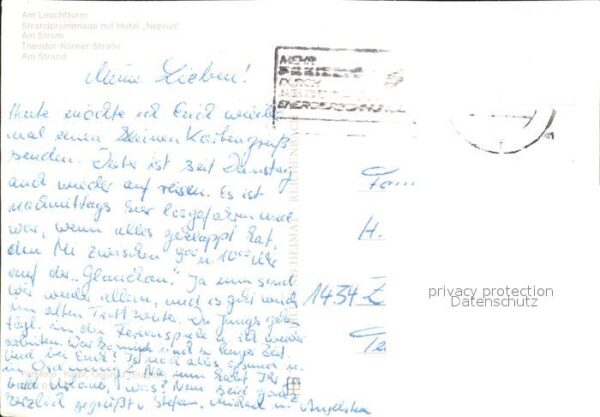 Am Leuchtturm
Strandpromenade mit Hotel „Neptun"
Am Strom
Theodor-Körner-Straße
Am Strand
MEHR
DURCH
Meine Lieben!
Heute möchte ich Euch wieder
mal einen kleinen Kartengruß
senden. Dieter ist seit Dienstag
auch wieder auf reisen. Es ist
nachmittags hier losgefahren und
war, wenn alles geklappt hat,
den Mi zwischen 9⁰⁰ u. 10⁰⁰ Uhr
auf der „Glauchau". Ja nun sind
wir wieder allein, und es geht auch
im alten Trott weiter. Die Jungs gehen
tägl. in die Ferienspiele u. ich wieder
arbeiten. Was
Und bei Euch? Ist noch alles gesund u.
in Ordnung? Na nun habt Ihr
bald Urlaub, was? Nun seid ganz
herzlich gegrüßt v. Stefan, u. Angelika
H.
1434 Z
privacy protection
Datenschutz